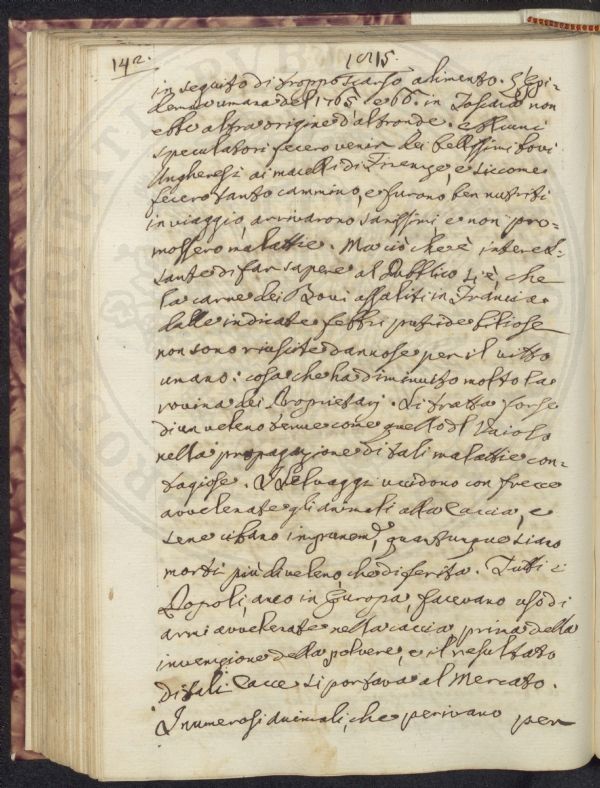 142.
1815.
in seguito di troppo scarso alimento. L'Epi-
demia umana del 1765 e 66. in Toscana non
ebbe altra origine d'altronde. alcuni
speculatori fecero venir dei bellissimi bovi
Ungheresi ai macelli di Firenze, e siccome
fecero tanto cammino, e furono ben nutriti
in viaggio, arrivarono sanissimi e non pro=
mossero malattie. Ma ciò che è interes=
sante di far sapere al Pubblico si è, che
la carne dei Bovi assaliti in Francia
dalle indicate febbri putride biliose
non sono riuscite dannose per il vitto
umano: cosa che ha diminuito molto la
rovina dei Proprietarj. Si tratta forse
di un veleno tenue come quello del Vaiolo
nella propagazione di tali malattie con=
tagiose. I Selvaggi uccidono con frecce
avvelenate gli animali alla Caccia, e
se ne cibano impunem.e, quantunque siano
morti più di veleno, che di ferita. Tutti i
Popoli, anco in Europa, facevano uso di
armi avvelenate nella caccia prima della
invenzione della polvere, e il resultato
di tali Cacce si portava al Mercato.
I numerosi animali, che perivano per